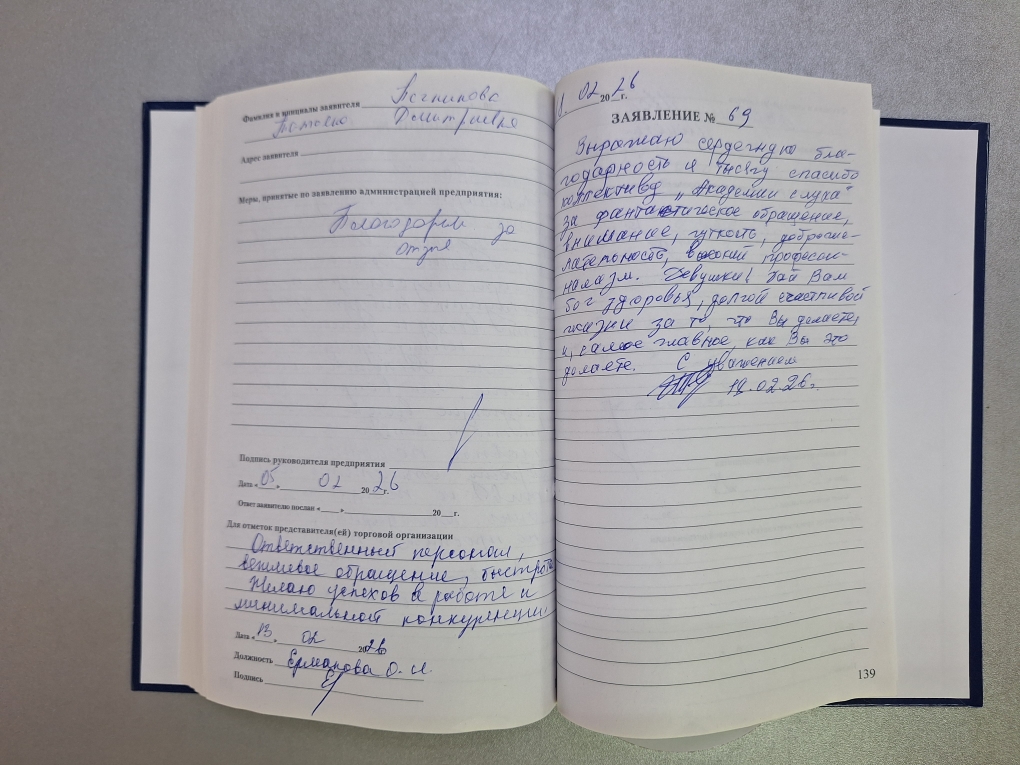 Фамилия и инициалы заявителя
Дмитриевна
Адрес заявителя
Меры, принятые по заявлению администрацией предприятия:
Благодарим за
отзыв
Подпись руководителя предприятия
Дата «05» 02 2026г.
Ответ заявителю послан «   » 20   г.
Для отметок представителя(ей) торговой организации
Ответственный персонал,
вежливое обращение, быстрота
Желаю успехов в работе и
минимальной конкуренции
Дата «13» 02 2026
Должность Ермакова О. И.
Подпись
02 2026г.
ЗАЯВЛЕНИЕ № 69
Выражаю сердечную бла-
годарность и тысячу спасибо
коллективу „Академии слуха"
за фантастическое обращение,
внимание, чуткость, доброже-
лательность, высокий професси-
нализм. Девушки! Дай Вам
бог здоровья, долгой счастливой
жизни за то, что Вы делаете,
и, самое главное, как Вы это
делаете. С уважением
02.26г.
139